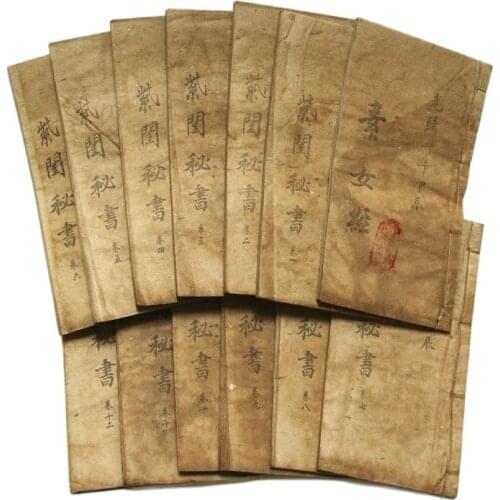 光緒 年甲辰
素女經
紫閨秘書 卷一
紫閨秘書 卷二
紫閨秘書 卷三
紫閨秘書 卷四
紫閨秘書 卷五
紫閨秘書 卷六
辰
秘書 卷七
秘書 卷八
秘書 卷九
秘書 卷十
秘書 卷十一
秘書 卷十二